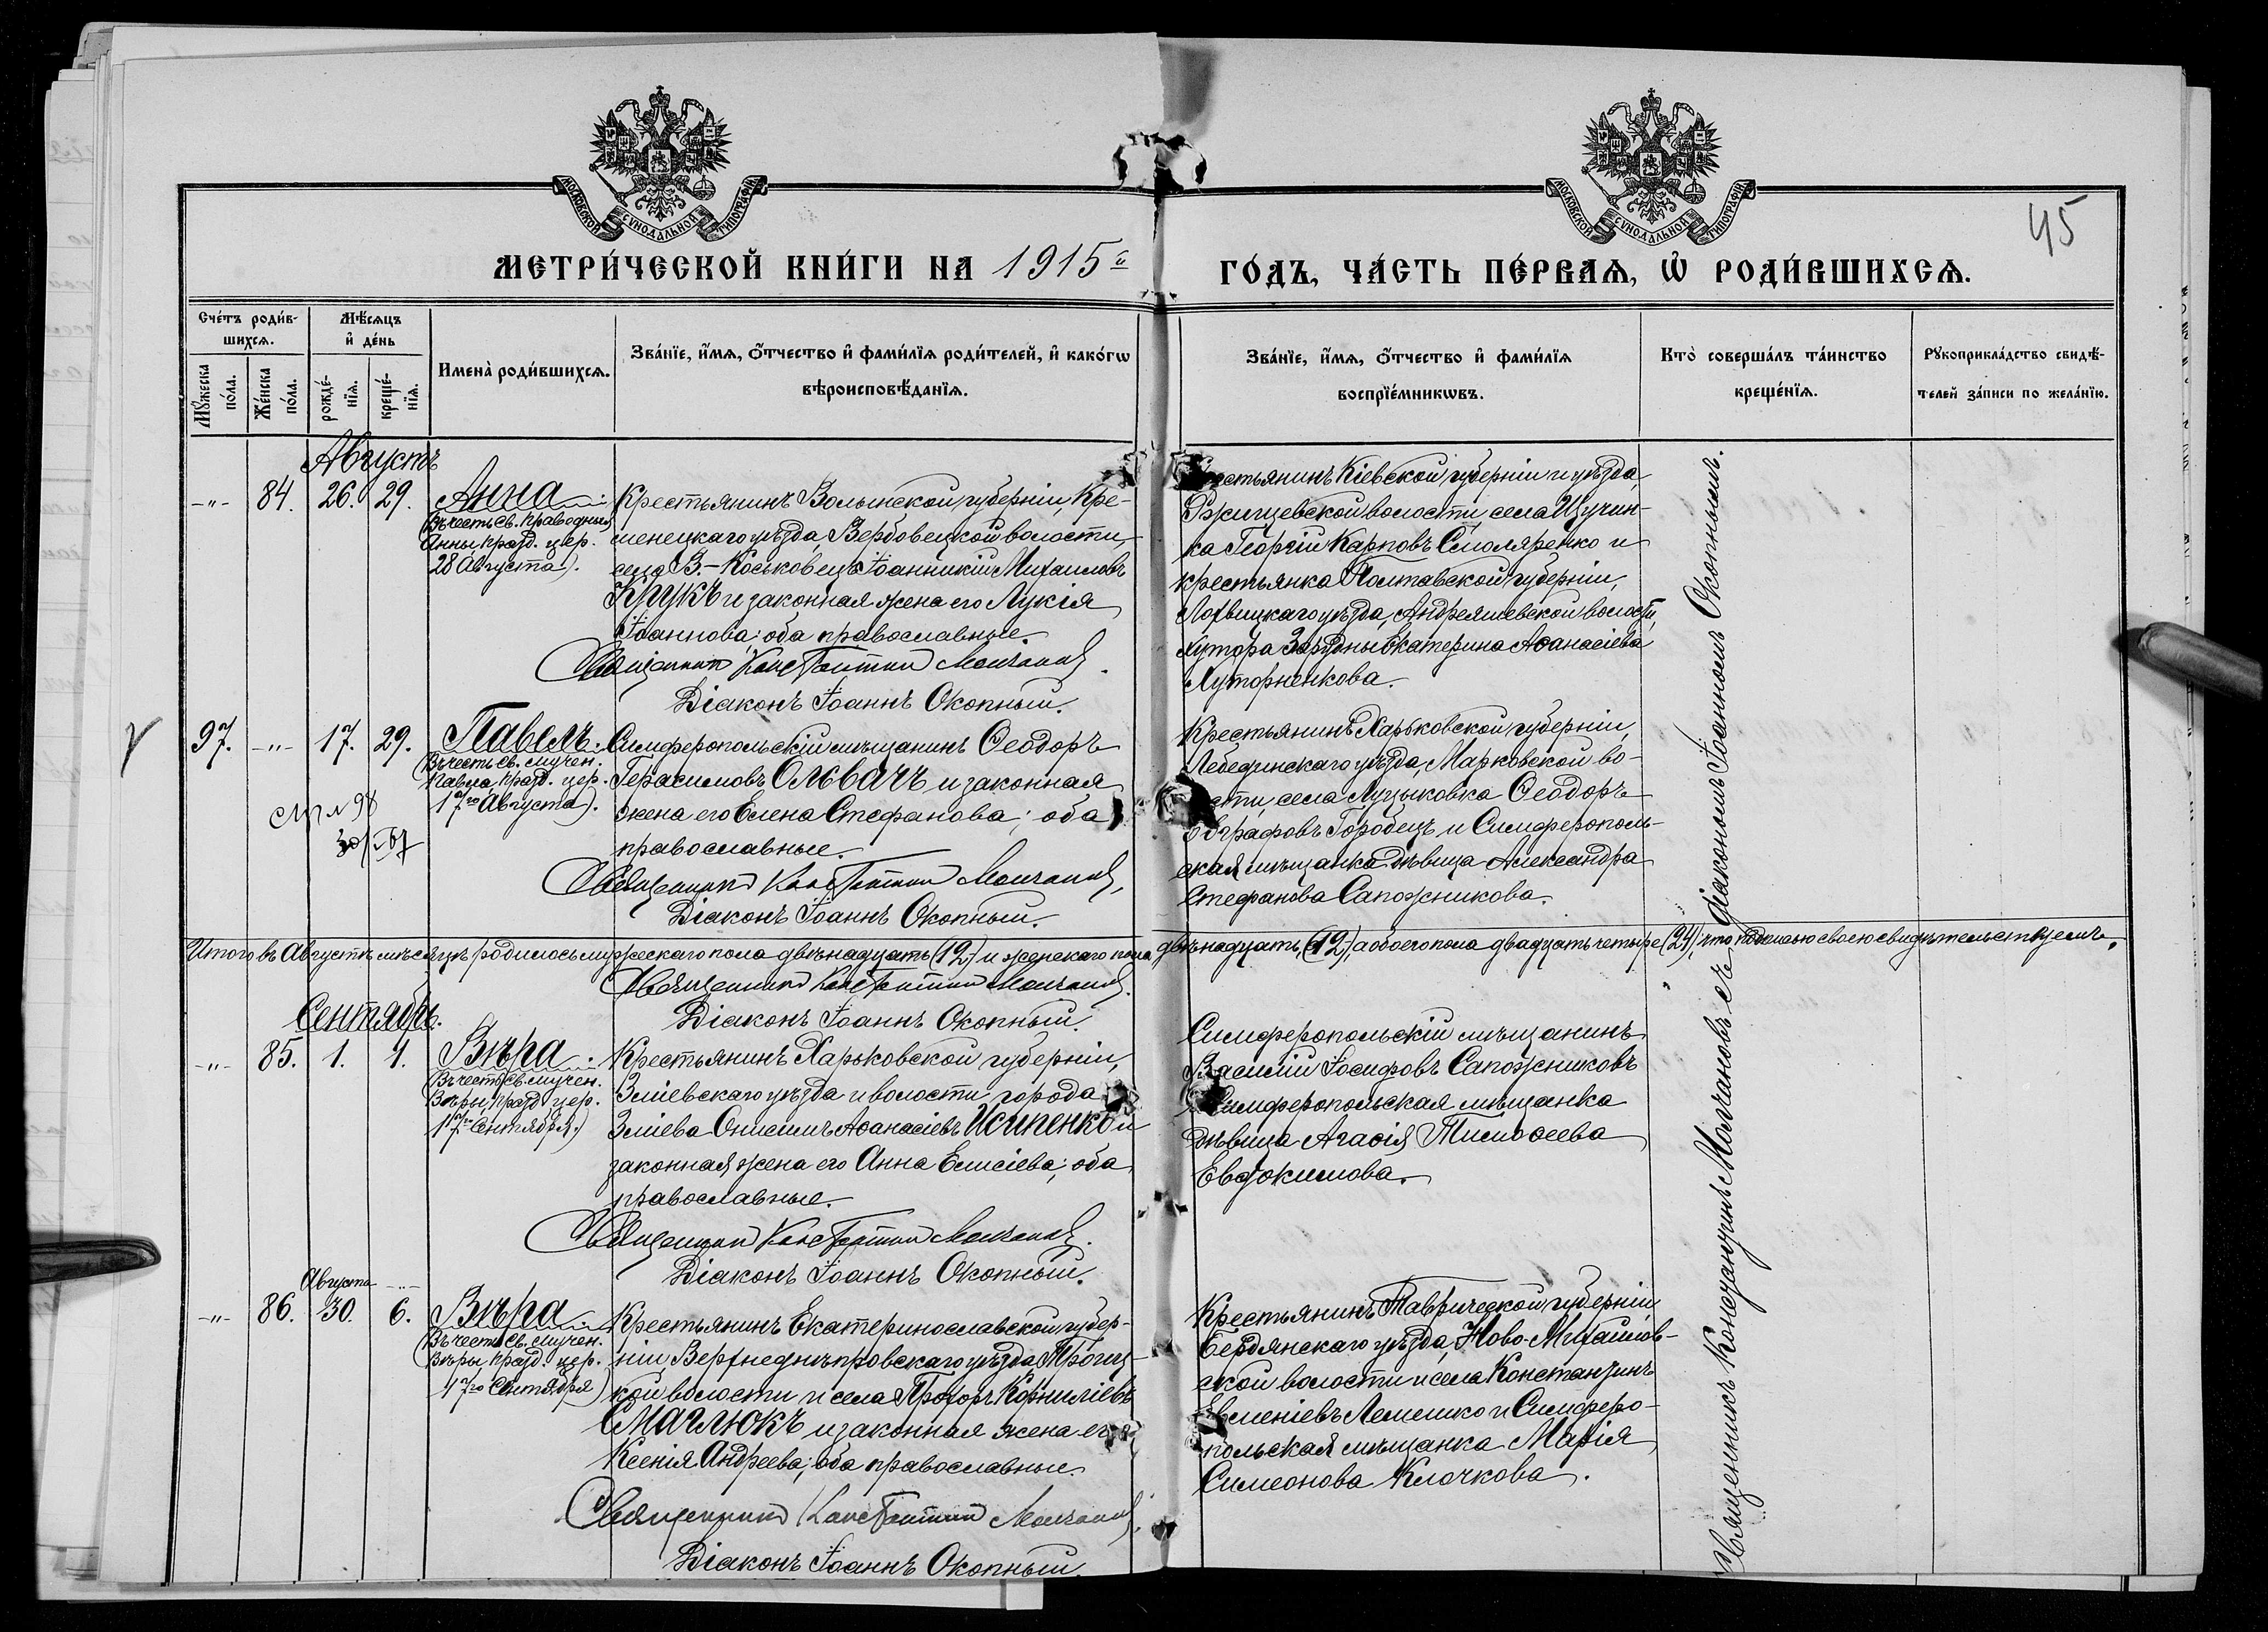 МОСКОВСКОЙ СѴНОДАЛЬНОЙ ТИПОГРАФІИ
МОСКОВСКОЙ СѴНОДАЛЬНОЙ ТИПОГРАФІИ
45
МЕТРИ́ЧЕСКОЙ КНИ́ГИ НА 1915й ГО́ДЪ, ЧА́СТЬ ПЕ́РВАѦ, Ѡ РОДИ́ВШИХСѦ.
Сче́тъ роди́в-
шихсѧ.
Мѣ́сѧцъ
и҆ де́нь
Мꙋ́жеска
по́ла.
Же́нска
по́ла.
рожде́-
нїѧ.
креще́-
нїѧ.
Имена̀ роди́вшихсѧ.
Зва́нїе, и҆́мѧ, ѻ҆́тчество и҆ фами́лїѧ роди́телей, и҆ како́гѡ
вѣроисповѣ́данїѧ.
Зва́нїе, и҆́мѧ, ѻ҆́тчество и҆ фами́лїѧ
воспрїе́мникѡвъ.
Кто̀ соверша́лъ та́инство
креще́нїѧ.
Рꙋкоприкла́дство свидѣ́-
телей за́писи по жела́нїю.
Августъ
-"- 84. 26. 29. Анна.
Въ честь св. праводныя
Анны, празд. цер.
28 Августа).
Крестьянинъ Волынской губерніи, Кре-
менецкаго уѣзда, Вербовецкой волости,
села В.-Коськовецъ Іоанникій Михаиловъ
Крукъ и законная жена его Лукія
Іоаннова; оба православные.
Священникъ Константинъ Молчановъ.
Діаконъ Іоаннъ Окопный.
крестьянинъ Кіевской губерніи и уѣзда,
Ржищевской волости, села Щучин-
ка Георгій Карповъ Смоляренко и
крестьянка Полтавской губерніи,
Лохвицкаго уѣзда, Андреяшевской волости,
хутора Екатерина Аѳанасіева
Хуторненкова.
97. -"- 17. 29. Павелъ.
Въ честь св. мучен.
Павла, празд. цер.
17го Августа).
Симферопольскій мѣщанинъ Ѳеодоръ
Герасимовъ Ольвачъ и законная
жена его Елена Стефанова; оба
православные.
Священникъ Константинъ Молчановъ,
Діаконъ Іоаннъ Окопный.
Крестьянинъ Харьковской губерніи,
Лебединскаго уѣзда, Марковской во-
лости, села Музыковка Ѳеодоръ
Евграфовъ Горобецъ и Симферополь-
ская мѣщанка дѣвица Александра
Стефанова Сапожникова.
Итого въ Августѣ мѣсяцѣ родилось мужескаго пола двѣнадцать (12) и женскаго пола двѣнадцать (12), а обоего пола двадцать четыре (24), что подписью своею свидѣтельствуемъ.
Священникъ Константинъ Молчановъ.
Діаконъ Іоаннъ Окопный.
Сентябрь.
-"- 85. 1. 1. Вѣра.
Въ честь св. мучен.
Вѣры, празд. цер.
17го Сентября)
Крестьянинъ Харьковской губерніи,
Зміевскаго уѣзда и волости, города
Зміева Онисимъ Аѳанасіевъ Исипенко и
законная жена его Анна Елисіева; оба
православные.
Священникъ Константинъ Молчановъ.
Діаконъ Іоаннъ Окопный.
Симферопольскій мѣщанинъ
Василій Іосифовъ Сапожниковъ
Симферопольская мѣщанка
дѣвица Агаѳія Тимоѳеева
Евдокимова.
Августа
-"- 86. 30. 6. Вѣра.
Въ честь св. мучен.
Вѣры, празд. цер.
17го Сентября)
Крестьянинъ Екатеринославской губер-
ніи, Верхнеднѣпровскаго уѣзда, Троиц-
кой волости и села Прохоръ Корниліевъ
Смаглюкъ и законная жена его
Ксенія Андреева; оба православные.
Священникъ Константинъ Молчановъ.
Діаконъ Іоаннъ Окопный.
Крестьянинъ Таврической губерніи
Бердянскаго уѣзда, Ново-Михаилов-
ской волости и села Константинъ
Евменіевъ Лемешко и Симферо-
польская мѣщанка Марія
Симеонова Клочкова.
Священникъ Константинъ Молчановъ съ діакономъ Іоанномъ Окопнымъ.